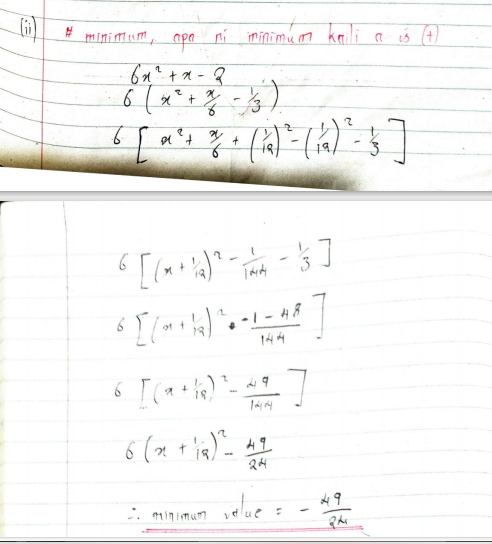 (ii) # minimum, apa ni minimum kaili a is (+)
6x² + x - 2
6 ( x² + x/6 - 1/3 )
6 [ x² + x/6 + (1/12)² - (1/12)² - 1/3 ]
6 [ (x + 1/12)² - 1/144 - 1/3 ]
6 [ (x + 1/12)² • -1 - 48 / 144 ]
6 [ (x + 1/12)² - 49/144 ]
6 (x + 1/12)² - 49/24
∴ minimum value = - 49/24